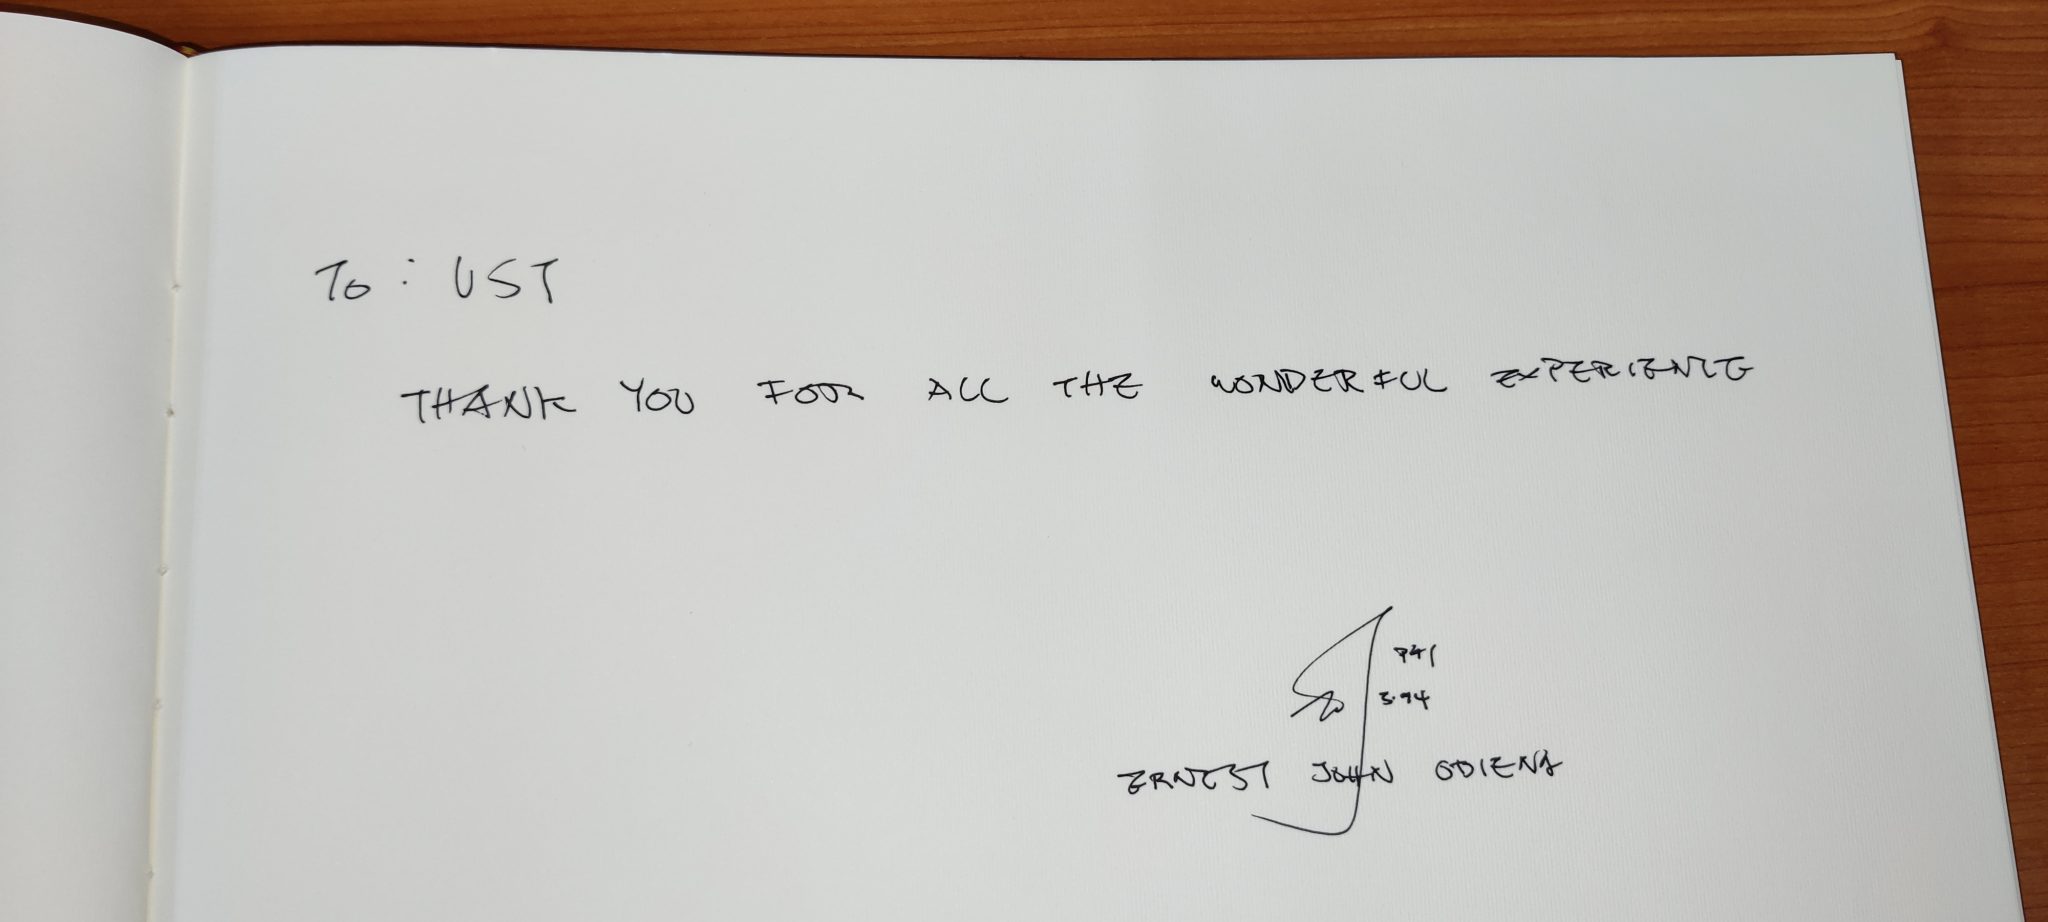 To : UST
THANK YOU FOOR ALL THE WONDERFUL EXPERIENCE
ERNEST JOHN